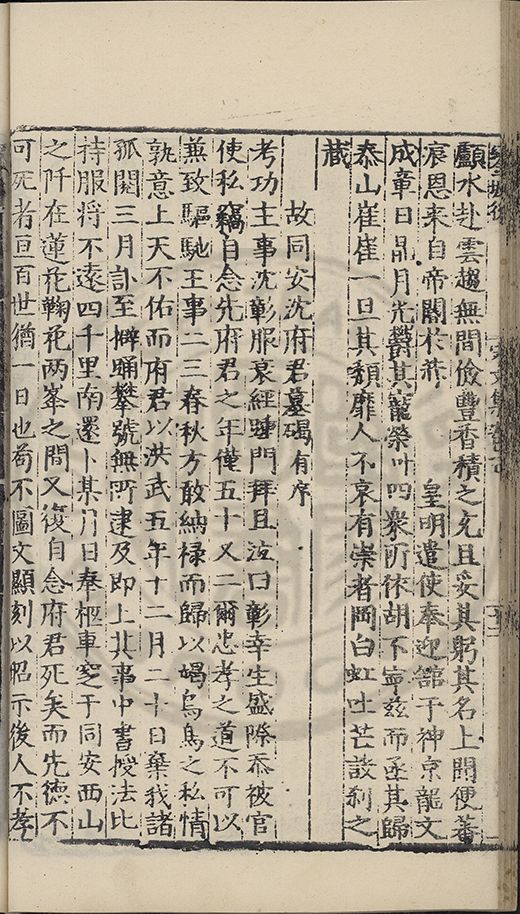 顱水赴雲趨無間儉豐香積之充且妥其躬其名上聞便蕃
衰恩来自帝閽於赫　皇明遣使奉迎舘于神京龍文
成章日晶月光欝其寵榮叶四衆所依胡不寧兹而遂其歸
泰山崔崔一旦其頹靡人不哀有崇者岡白虹吐芒誠刹之
藏
故同安沈府君墓碣有序
考功主事沈彰服衰絰踵門拜且泣曰彰幸生盛際忝被官
使私竊自念先府君之年僅五十又二爾忠孝之道不可以
兼致驅馳王事二三春秋方敢納禄而歸以竭烏鳥之私情
孰意上天不佑而府君以洪武五年十二月二十日棄我諸
孤閲三月訃至擗踊攀號無所逮及即上其事中書授法比
持服將不遠四千里南還卜某月日奉柩車窆于同安西山
之阡在蓮花鞠花两峯之間又復自念府君死矣而先德不
可死者亘百世猶一日也苟不圖文顯刻以昭示後人不孝